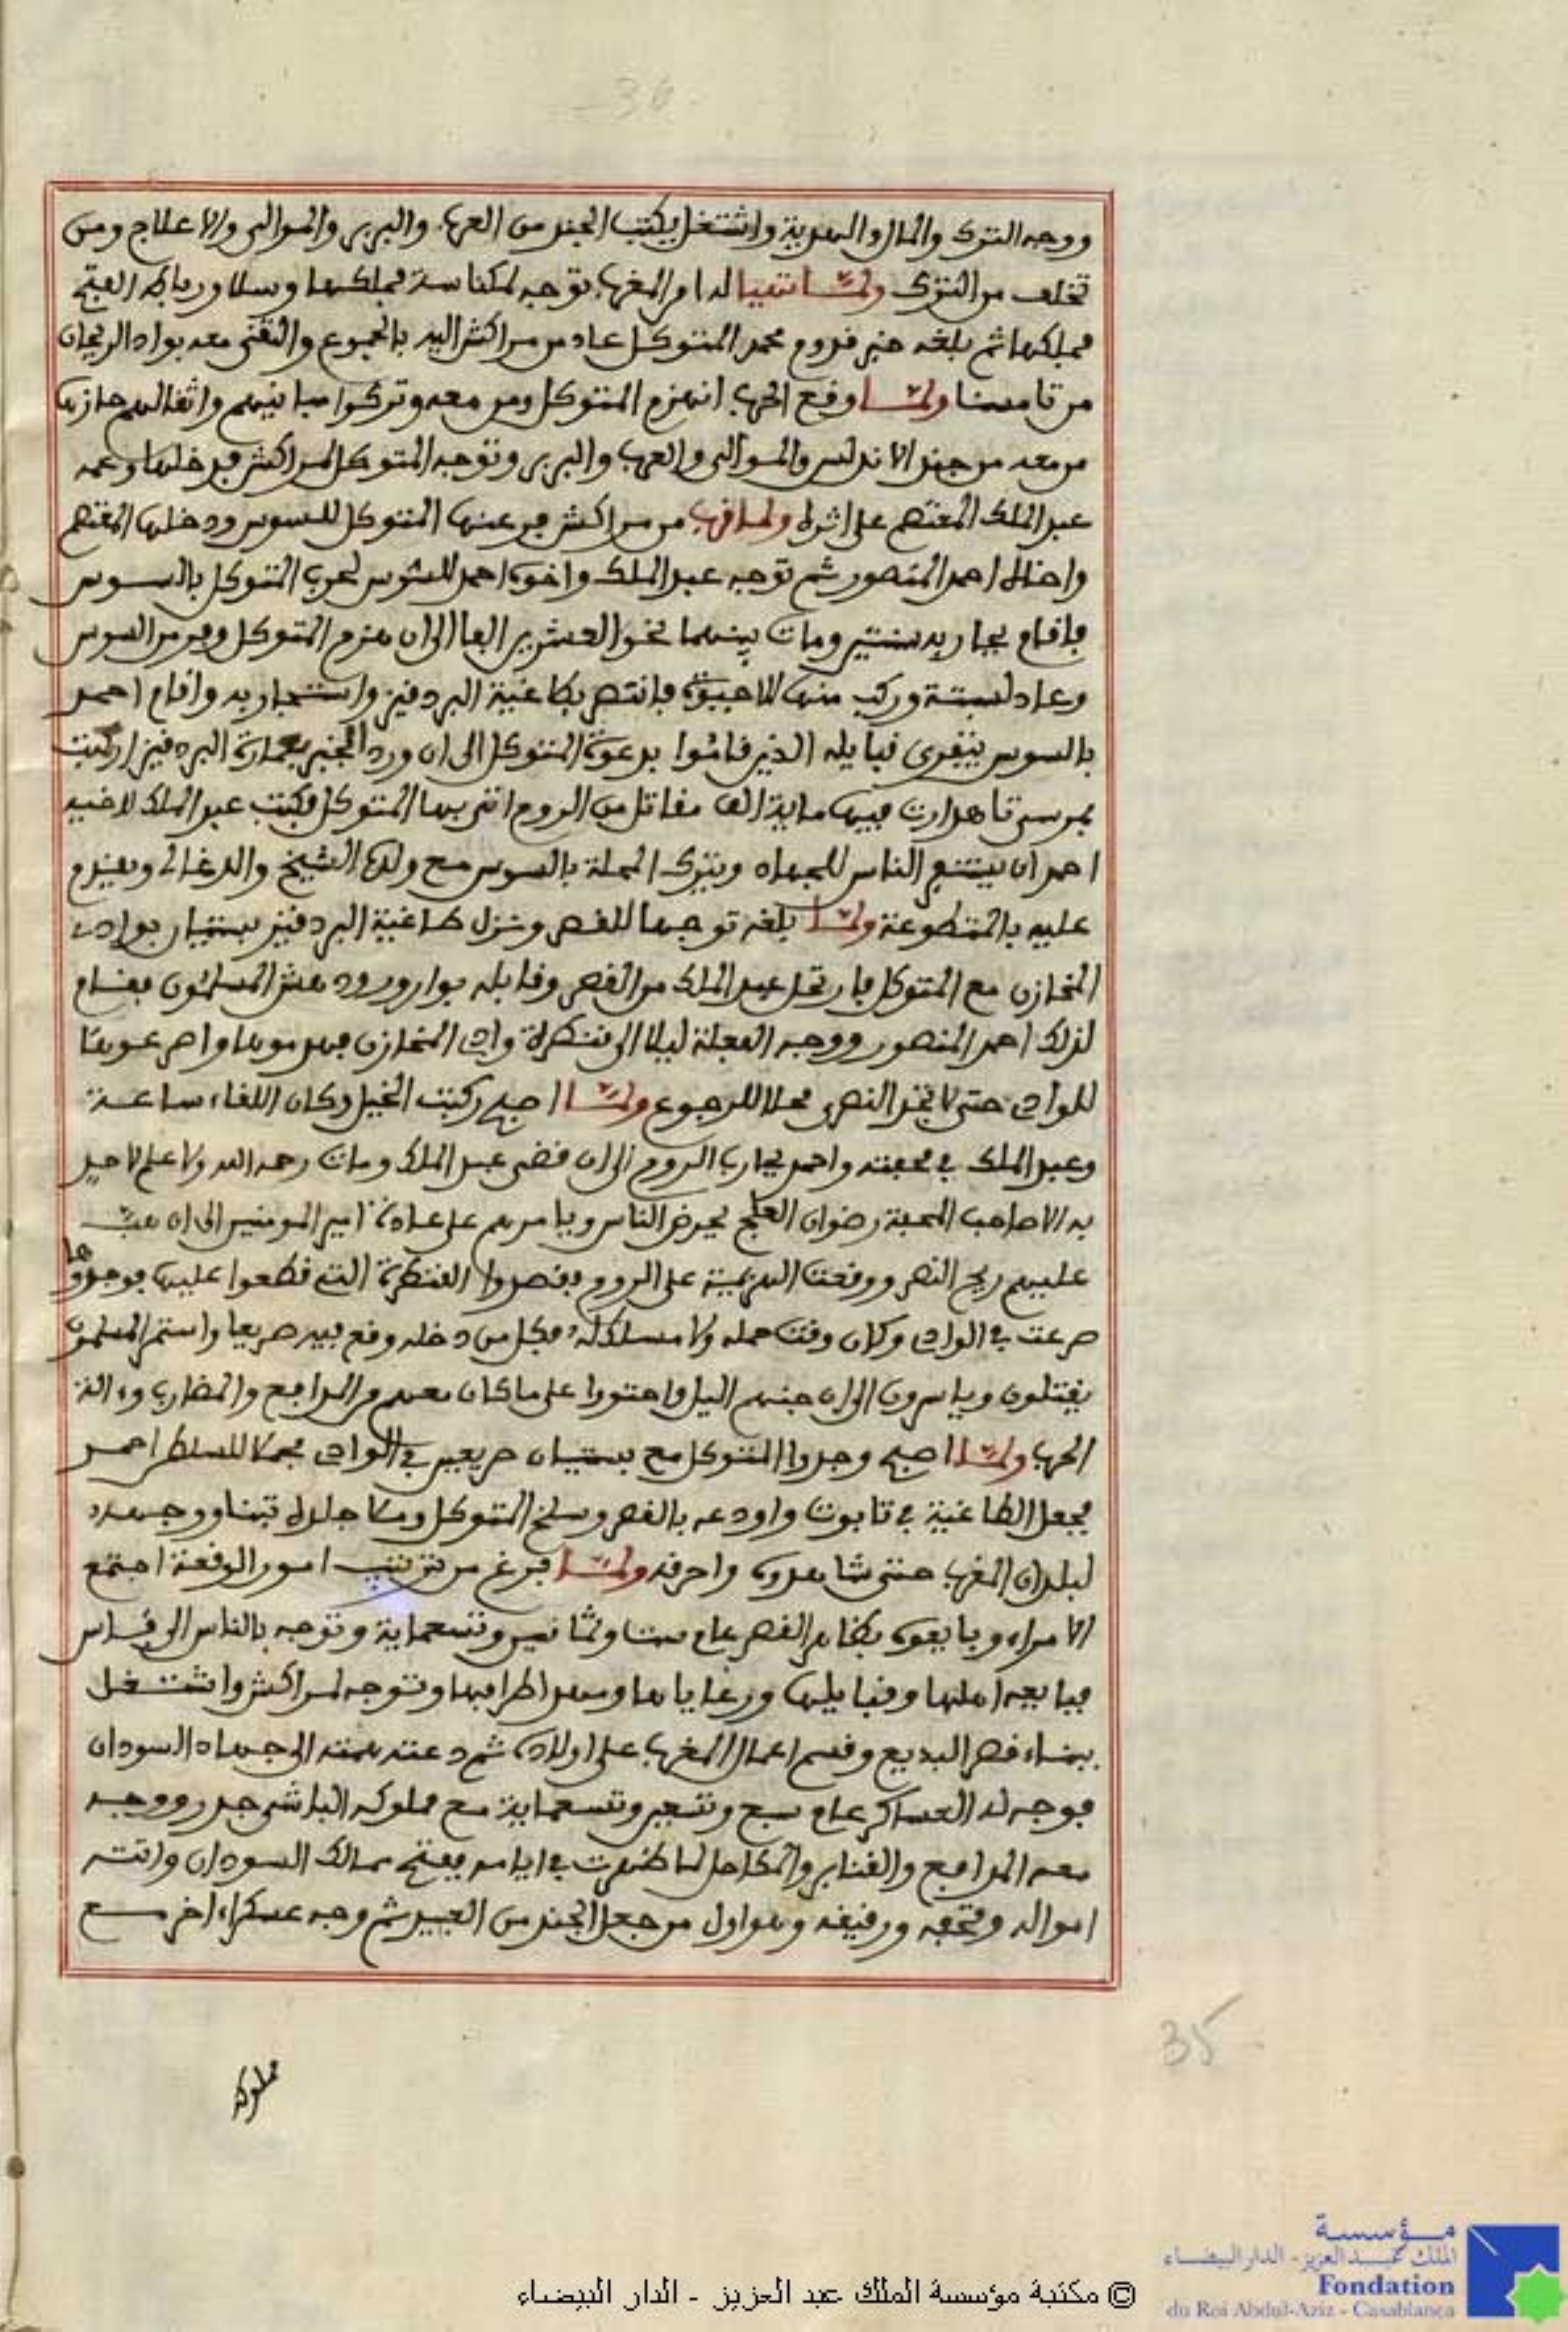 36
ووجه الترك والمال والهدية واشتغل بكتب الجند من العرب والبربر والموالي والاعلاج ومن
تخلف من الترك ولما تهيا له امر المغرب توجه لمكناسة فملكها وسلا ورباط الفتح
فملكها ثم بلغه خبر قدوم محمد المتوكل عاد من مراكش اليه بالجموع والتقى معه بواد الريحان
من تامسنا ولما وقع الحرب انهزم المتوكل ومن معه وتركوا مبانيهم واثقالهم حازها
من معه من جند الاندلس والموالي والعرب والبربر وتوجه المتوكل لمراكش فدخلها وعمه
عبد الملك المعتصم على اثره ولما قرب من مراكش فر عنها المتوكل للسوس ودخلها المعتصم
واخاه احمد المنصور ثم توجه عبد الملك واخوه احمد للسوس لحرب المتوكل بالسوس
فاقام يحاربه سنتين ومات بينهما نحو العشرين الفا الى ان هزم المتوكل وفر من السوس
وعاد لسبتة وركب منها فانتصر بطاغية البردقيز واستجار به واقام احمد
بالسوس قبايله الذين قاموا بدعوة المتوكل الى ان ورد الخبر بعمارة البردقيز ارست
بمرسى تاهدارت فيها ماية الف مقاتل من الروم اتى بها المتوكل فكتب عبد الملك لاخيه
احمد ان الناس للجهاد ويترك المحلة بالسوس مع ولده الشيخ والدغالي ويقدم
عليه بالمتطوعة ولما بلغه توجها للقصر ونزل طاغية البردقيز بستيان بوادي
المخازن مع المتوكل فارتحل عبد الملك من القصر وقابله بوارورود المسلمون فقام
لذلك احمد المنصور ووجه الفعلة ليلا الى قنطرة وادي المخازن فهدموها
للوادي حتى لا يجد النصرى محلا للرجوع ولما اصبح ركبت الخيل وكان اللقاء ساعة
وعبد الملك في محفته واحمد يحارب الروم الى ان قضى عبد الملك ومات رحمه الله ولا علم لاحد
به الا صاحب المحفة رضوان العلج يحرض الناس ويامرهم على عادة امير المومنين الى ان هبت
عليهم ريح النصر ووقعت الهزيمة على الروم فقصدوا القنطرة التي قطعوا عليها فوجدوها
صرعت في الوادي وكان وقت حمله ولا مسلك له فكل من دخله وقع فيه صريعا واستمر المسلمون
يقتلون وياسرون الى ان جنهم اليل واحتووا على ما كان معهم من المدافع والمضارب وءالة
الحرب ولما اصبح وجدوا المتوكل مع بستيان صريعين في الوادي فحملا للسلطان احمد
فجعل الطاغية في تابوت واودعه بالقصر وسلخ المتوكل وملا جلده تبنا ووجهه
لبلدان المغرب حتى شاهدوه واحرقه ولما فرغ من ترتيب امور الوقعة اجتمع
الامراء وبايعوه بظاهر القصر عام ست وثمانين وتسعماية وتوجه بالناس الى فاس
فبايعه اهلها وقبايلها ورعاياها ومهد اطرافها وتوجه لمراكش واشتغل
ببناء قصر البديع وقسم اعمال المغرب على اولاده ثم دعته همته الى جهاد السودان
فوجه له العساكر عام سبع وتسعين وتسعماية مع مملوكه الباشى جدر ووجه
معه المدافع والقنابر والمكاحل لما ظهرت في ايامه ففتح ممالك السودان واتته
امواله وتحفه ورقيقه وهو اول من جعل الجند من العبيد ثم وجه عسكرا اخر مع
مملوكه
35
مؤسسة
الملك عبد العزيز - الدار البيضاء
Fondation
du Roi Abdul-Aziz - Casablanca
© مكتبة مؤسسة الملك عبد العزيز - الدار البيضاء